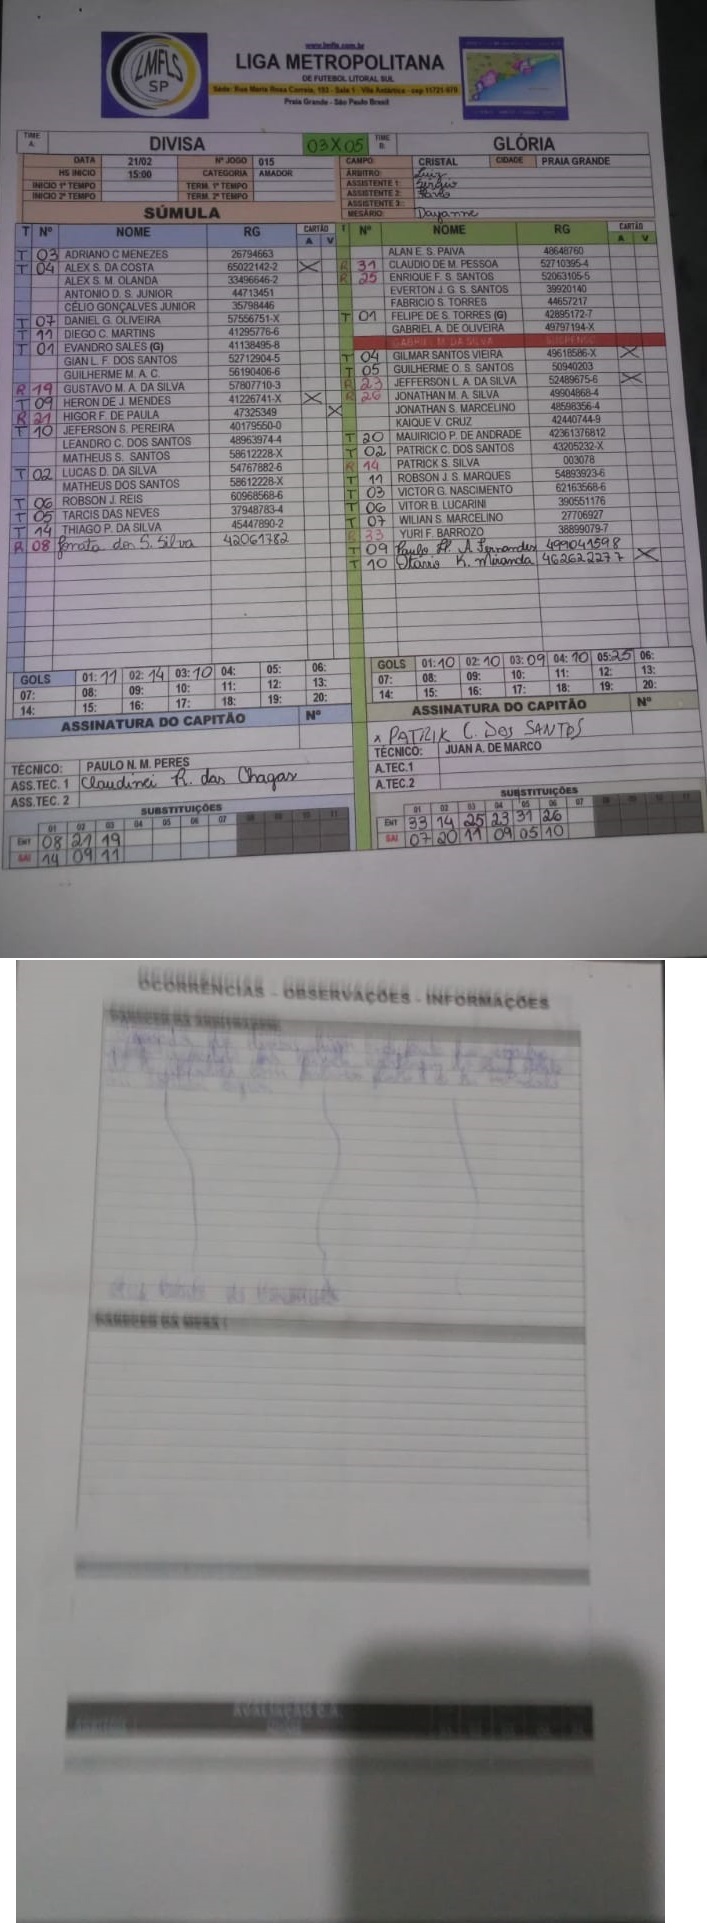 LMFLS
SP
www.lmfls.com.br
LIGA METROPOLITANA
DE FUTEBOL LITORAL SUL
Séde: Rua Maria Rosa Correia, 193 - Sala 1 - Vila Antártica - cep 11721-070
Praia Grande - São Paulo Brasil
TIME A: DIVISA 03 X 05 TIME B: GLÓRIA
DATA 21/02 Nº JOGO 015 CAMPO: CRISTAL CIDADE PRAIA GRANDE
HS INICIO 15:00 CATEGORIA AMADOR ÁRBITRO: Luiz
INICIO 1º TEMPO TERM. 1º TEMPO ASSISTENTE 1: Sérgio
INICIO 2º TEMPO TERM. 2º TEMPO ASSISTENTE 2:
ASSISTENTE 3:
SÚMULA MESÁRIO: Dayanne
T Nº NOME RG CARTÃO A V
T 03 ADRIANO C MENEZES 26794663
T 04 ALEX S. DA COSTA 65022142-2 X
ALEX S. M. OLANDA 33496646-2
ANTONIO D. S. JUNIOR 44713451
CÉLIO GONÇALVES JUNIOR 35798446
T 07 DANIEL G. OLIVEIRA 57556751-X
T 11 DIEGO C. MARTINS 41295776-6
T 01 EVANDRO SALES (G) 41138495-8
GIAN L. F. DOS SANTOS 52712904-5
GUILHERME M. A. C. 56190406-6
R 19 GUSTAVO M. A. DA SILVA 57807710-3
T 09 HERON DE J. MENDES 41226741-X X
R 21 HIGOR F. DE PAULA 47325349 X
T 10 JEFERSON S. PEREIRA 40179550-0
LEANDRO C. DOS SANTOS 48963974-4
MATHEUS S. SANTOS 58612228-X
T 02 LUCAS D. DA SILVA 54767882-6
MATHEUS DOS SANTOS 58612228-X
T 06 ROBSON J. REIS 60968568-6
T 05 TARCIS DAS NEVES 37948783-4
T 14 THIAGO P. DA SILVA 45447890-2
R 08 Renato dos S. Silva 42061782
T Nº NOME RG CARTÃO A V
ALAN E. S. PAIVA 48648760
R 31 CLAUDIO DE M. PESSOA 52710395-4
R 25 ENRIQUE F. S. SANTOS 52063105-5
EVERTON J. G. S. SANTOS 39920140
FABRICIO S. TORRES 44657217
T 01 FELIPE DE S. TORRES (G) 42895172-7
GABRIEL A. DE OLIVEIRA 49797194-X
GABRIEL M. DA SILVA SUSPENSO
T 04 GILMAR SANTOS VIEIRA 49618586-X X
T 05 GUILHERME O. S. SANTOS 50940203
R 23 JEFFERSON L. A. DA SILVA 52489675-6 X
R 26 JONATHAN M. A. SILVA 49904868-4
JONATHAN S. MARCELINO 48598356-4
KAIQUE V. CRUZ 42440744-9
T 20 MAUIRICIO P. DE ANDRADE 42361376812
T 02 PATRICK C. DOS SANTOS 43205232-X
R 14 PATRICK S. SILVA 003078
T 11 ROBSON J. S. MARQUES 54893923-6
T 03 VICTOR G. NASCIMENTO 62163568-6
T 06 VITOR B. LUCARINI 390551176
T 07 WILIAN S. MARCELINO 27706927
R 33 YURI F. BARROZO 38899079-7
T 09 Paulo H. A. Fernandes 499041598
T 10 Otávio K. Miranda 462622277 X
GOLS 01: 11 02: 14 03: 10 04: 05: 06:
07: 08: 09: 10: 11: 12: 13:
14: 15: 16: 17: 18: 19: 20:
ASSINATURA DO CAPITÃO Nº
TÉCNICO: PAULO N. M. PERES
ASS.TEC. 1 Claudinei R. das Chagas
ASS.TEC. 2
SUBSTITUIÇÕES
01 02 03 04 05 06 07 08 09 10 11
ENT 08 21 19
SAI 14 09 11
GOLS 01: 10 02: 10 03: 09 04: 10 05: 25 06:
07: 08: 09: 10: 11: 12: 13:
14: 15: 16: 17: 18: 19: 20:
ASSINATURA DO CAPITÃO Nº
x PATRIK C. DOS SANTOS
TÉCNICO: JUAN A. DE MARCO
A.TEC.1
A.TEC.2
SUBSTITUIÇÕES
01 02 03 04 05 06 07 08 09 10 11
ENT 33 14 25 23 31 26
SAI 07 20 11 09 05 10
OCORRÊNCIAS - OBSERVAÇÕES - INFORMAÇÕES
PARECER DA ARBITRAGEM
PARECER DA MESA :
AVALIAÇÃO C.A.